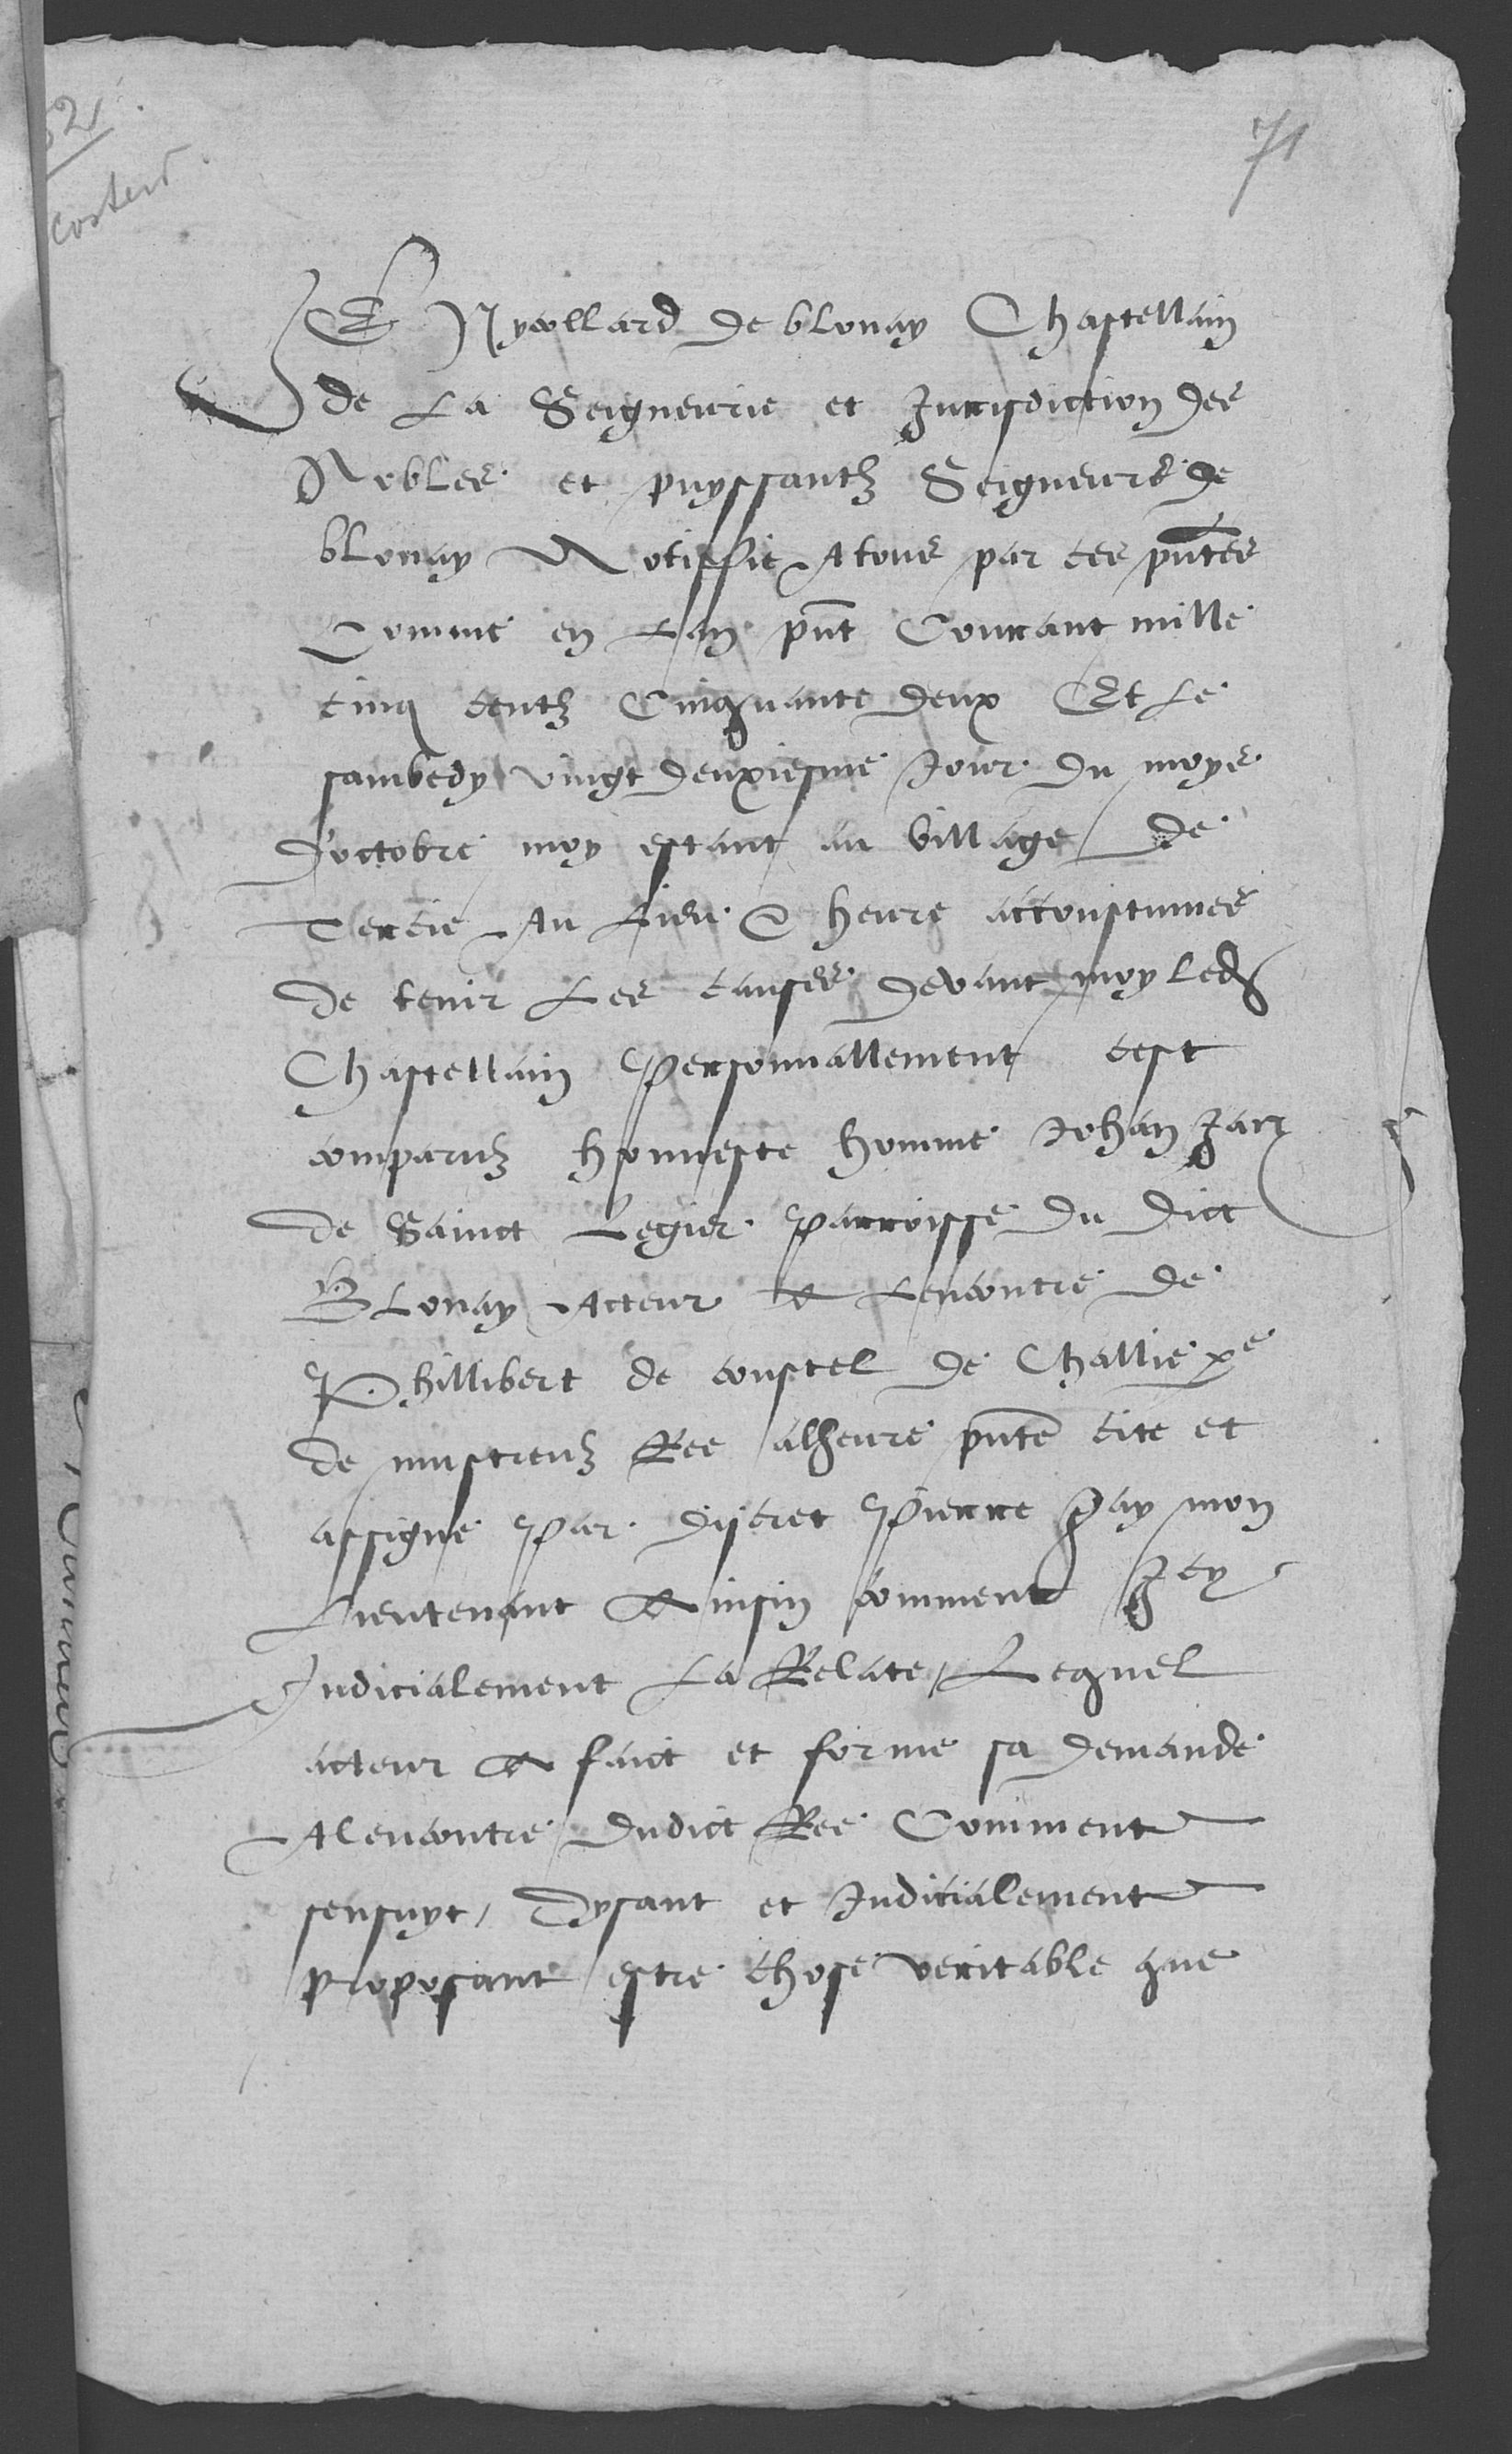 71
52
Costerd
JE Nycollard de blonay Chastellain
de La Seigneurie et Jurisdiction des
Nobles et puyssantz Seigneurs de
blonay Notiffie A tous par ces pntes
Comme en Lan pnt Courant mille
cinq centz Cinquante deux Et Le
sambedy vingt deuxiesme Jour du moys
doctobre moy estant au village de
Tercie Au Lieu & heure accoustumes
de tenir Les causes devant moy led
Chastellain personnallement cest
comparuz honneste homme Johan
de Sainct Legier parroisse du dict
BLonay Acteur A Lencontre de
Phillibert de coustel de Challie pe
de mustreuz Ree alheure pnte cite et
assigne par discret pierre Jay mon
Lieutenant Ainsin comment Jcy
Judicialement La Relate, Lequel
acteur A faict et forme sa demande
Alencontre dudict Ree Comment
sensuyt, Dysant et Judicialement
proposant estre chose veritable que